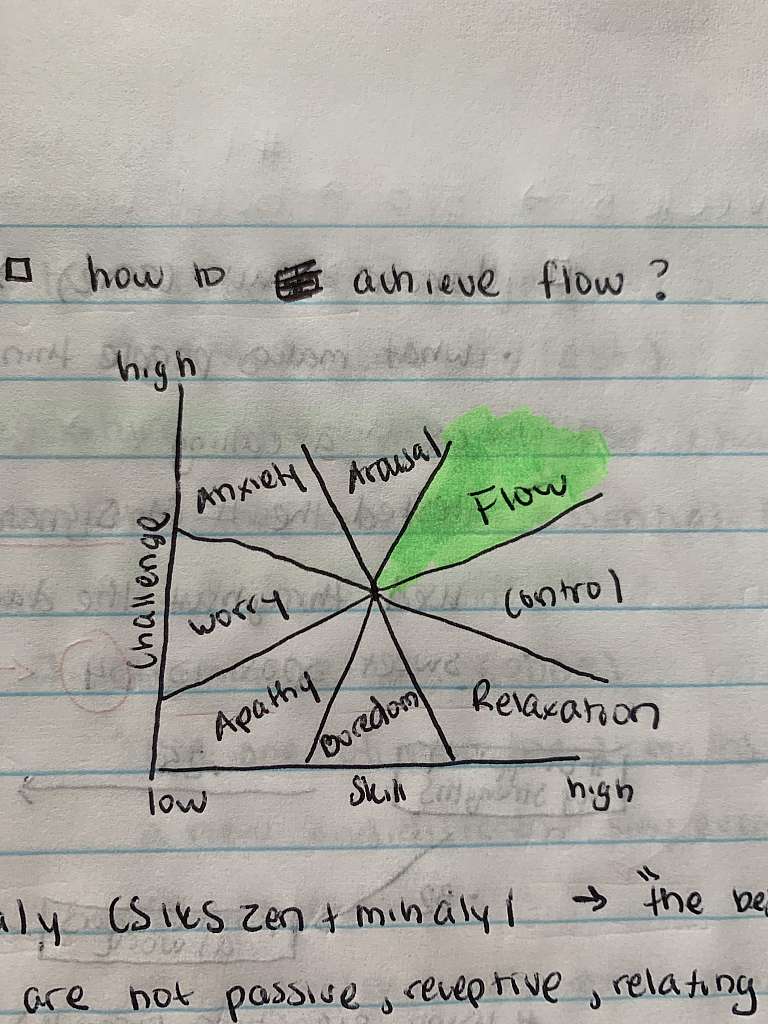 how to achieve flow?
high
Anxiety
Arousal
Flow
Challenge
worry
control
Apathy
Boredom
Relaxation
low
Skill
high
aly CSIKSzentmihalyi → "the be
are not passive, receptive, relating